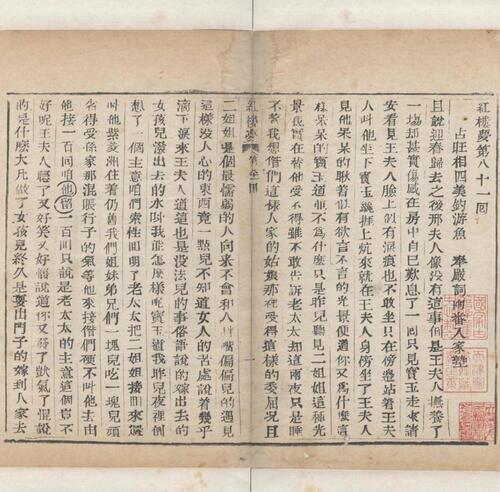 紅樓夢第八十一回
占旺相四美釣游魚 奉嚴詞兩番入家塾
且說迎春歸去之後邢夫人像沒有這事倒是王夫人撫養了
一塲却甚實傷感在房中自己歎息了一回只見寶玉走來請
安看見王夫人臉上似有淚痕也不敢坐只在傍邊站着王夫
人叫他坐下寶玉纔捱上炕來就在王夫人身傍坐了王夫人
見他呆呆的瞅着似有欲言不言的光景便道你又爲什麼這
樣呆呆的寶玉道並不爲什麼只是昨兒聽見二姐姐這種光
景我實在替他受不得雖不敢告訴老太太却這兩夜只是睡
不着我想偺們這樣人家的姑娘那裡受得這樣的委屈况且
紅樓夢
二姐姐是個最懦弱的人向來不會和人拌嘴偏偏兒的遇見
這樣没人心的東西竟一點兒不知道女人的苦處說着幾乎
滴下淚來王夫人道這也是沒法兒的事俗語說的嫁出去的
女孩兒潑出去的水叫我能怎麼樣呢寶玉道我昨兒夜裡倒
想了一個主意咱們索性囘明了老太太把二姐姐接囘來還
叫他紫菱洲住着仍舊我們姐妹弟兄們一塊兒吃一塊兒頑
省得受孫家那混賬行子的氣等他來接偺們硬不叫他去由
他接一百囘咱他留一百囘只說是老太太的主意這個豈不
好呢王夫人聽了又好笑又好惱說道你又發了獃氣了混說
的是什麽大凡做了女孩兒終久是要出門子的嫁到人家去